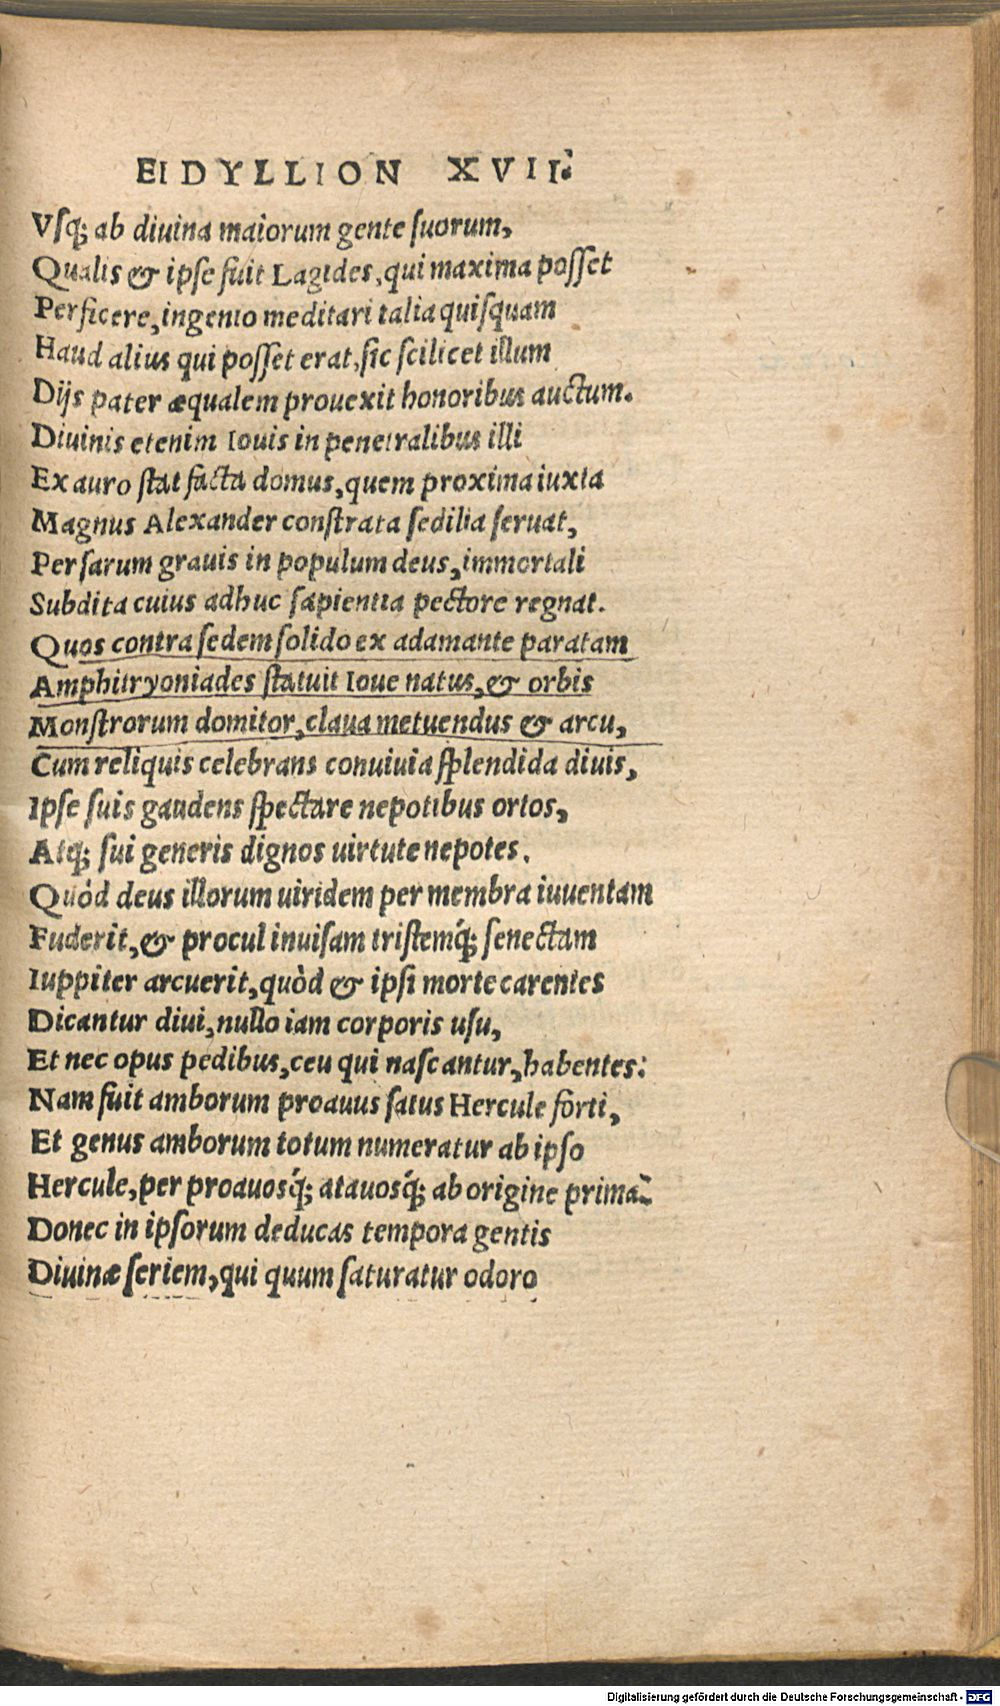 EIDYLLION XVII.
Vſq; ab diuina maiorum gente ſuorum,
Qualis & ipſe fuit Lagides, qui maxima poſſet
Perficere, ingenio meditari talia quiſquam
Haud alius qui poſſet erat, ſic ſcilicet illum
Dijs pater æqualem prouexit honoribus auctum.
Diuinis etenim Iouis in penetralibus illi
Ex auro ſtat facta domus, quem proxima iuxta
Magnus Alexander conſtrata ſedilia ſeruat,
Perſarum grauis in populum deus, immortali
Subdita cuius adhuc ſapientia pectore regnat.
Quos contra ſedem ſolido ex adamante paratam
Amphitryoniades ſtatuit Ioue natus, & orbis
Monſtrorum domitor, claua metuendus & arcu,
Cum reliquis celebrans conuiuia ſplendida diuis,
Ipſe ſuis gaudens ſpectare nepotibus ortos,
Atq; ſui generis dignos uirtute nepotes.
Quòd deus illorum uiridem per membra iuuentam
Fuderit, & procul inuiſam triſtemq́; ſenectam
Iuppiter arcuerit, quòd & ipſi morte carentes
Dicantur diui, nullo iam corporis uſu,
Et nec opus pedibus, ceu qui naſcantur, habentes:
Nam fuit amborum proauus ſatus Hercule forti,
Et genus amborum totum numeratur ab ipſo
Hercule, per proauosq́; atauosq́; ab origine prima:
Donec in ipſorum deducas tempora gentis
Diuinæ ſeriem, qui quum ſaturatur odoro
Digitalisierung gefördert durch die Deutsche Forschungsgemeinschaft - DFG